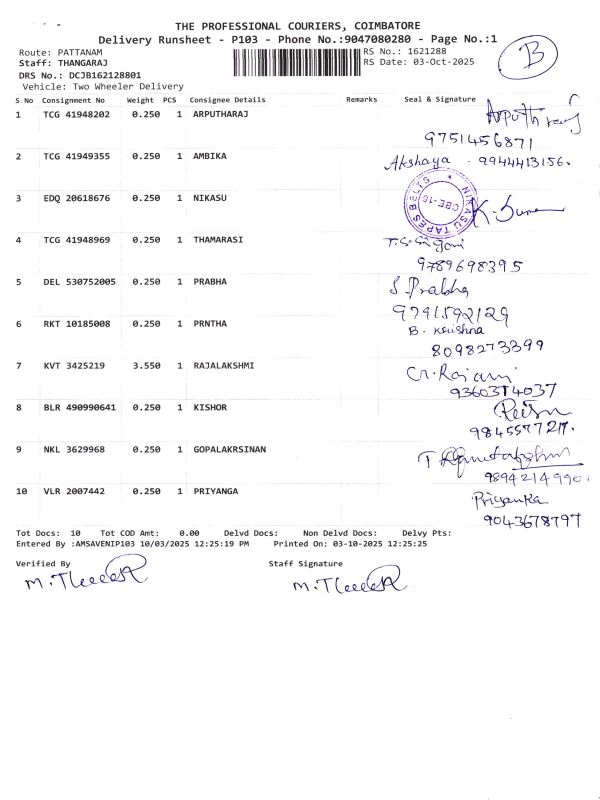 THE PROFESSIONAL COURIERS, COIMBATORE
Delivery Runsheet - P103 - Phone No.:9047080280 - Page No.:1
B
Route: PATTANAM
RS No.: 1621288
Staff: THANGARAJ
RS Date: 03-Oct-2025
DRS No.: DCJB162128801
Vehicle: Two Wheeler Delivery
S No Consignment No Weight PCS Consignee Details Remarks Seal & Signature
1 TCG 41948202 0.250 1 ARPUTHARAJ
Arputharaj
9751456871
2 TCG 41949355 0.250 1 AMBIKA
Akshaya - 9944413156.
3 EDQ 20618676 0.250 1 NIKASU
NIKASU TAPES BELTS
CBE-16
4 TCG 41948969 0.250 1 THAMARASI
9789698395
5 DEL 530752005 0.250 1 PRABHA
S. Prabha
9791592129
6 RKT 10185008 0.250 1 PRNTHA
B. Krishna
8098273399
7 KVT 3425219 3.550 1 RAJALAKSHMI
9360374037
8 BLR 490990641 0.250 1 KISHOR
9 NKL 3629968 0.250 1 GOPALAKRSINAN
9894214990
10 VLR 2007442 0.250 1 PRIYANGA
Priyanka
9043678797
Tot Docs: 10 Tot COD Amt: 0.00 Delvd Docs: Non Delvd Docs: Delvy Pts:
Entered By :AMSAVENIP103 10/03/2025 12:25:19 PM Printed On: 03-10-2025 12:25:25
Verified By Staff Signature